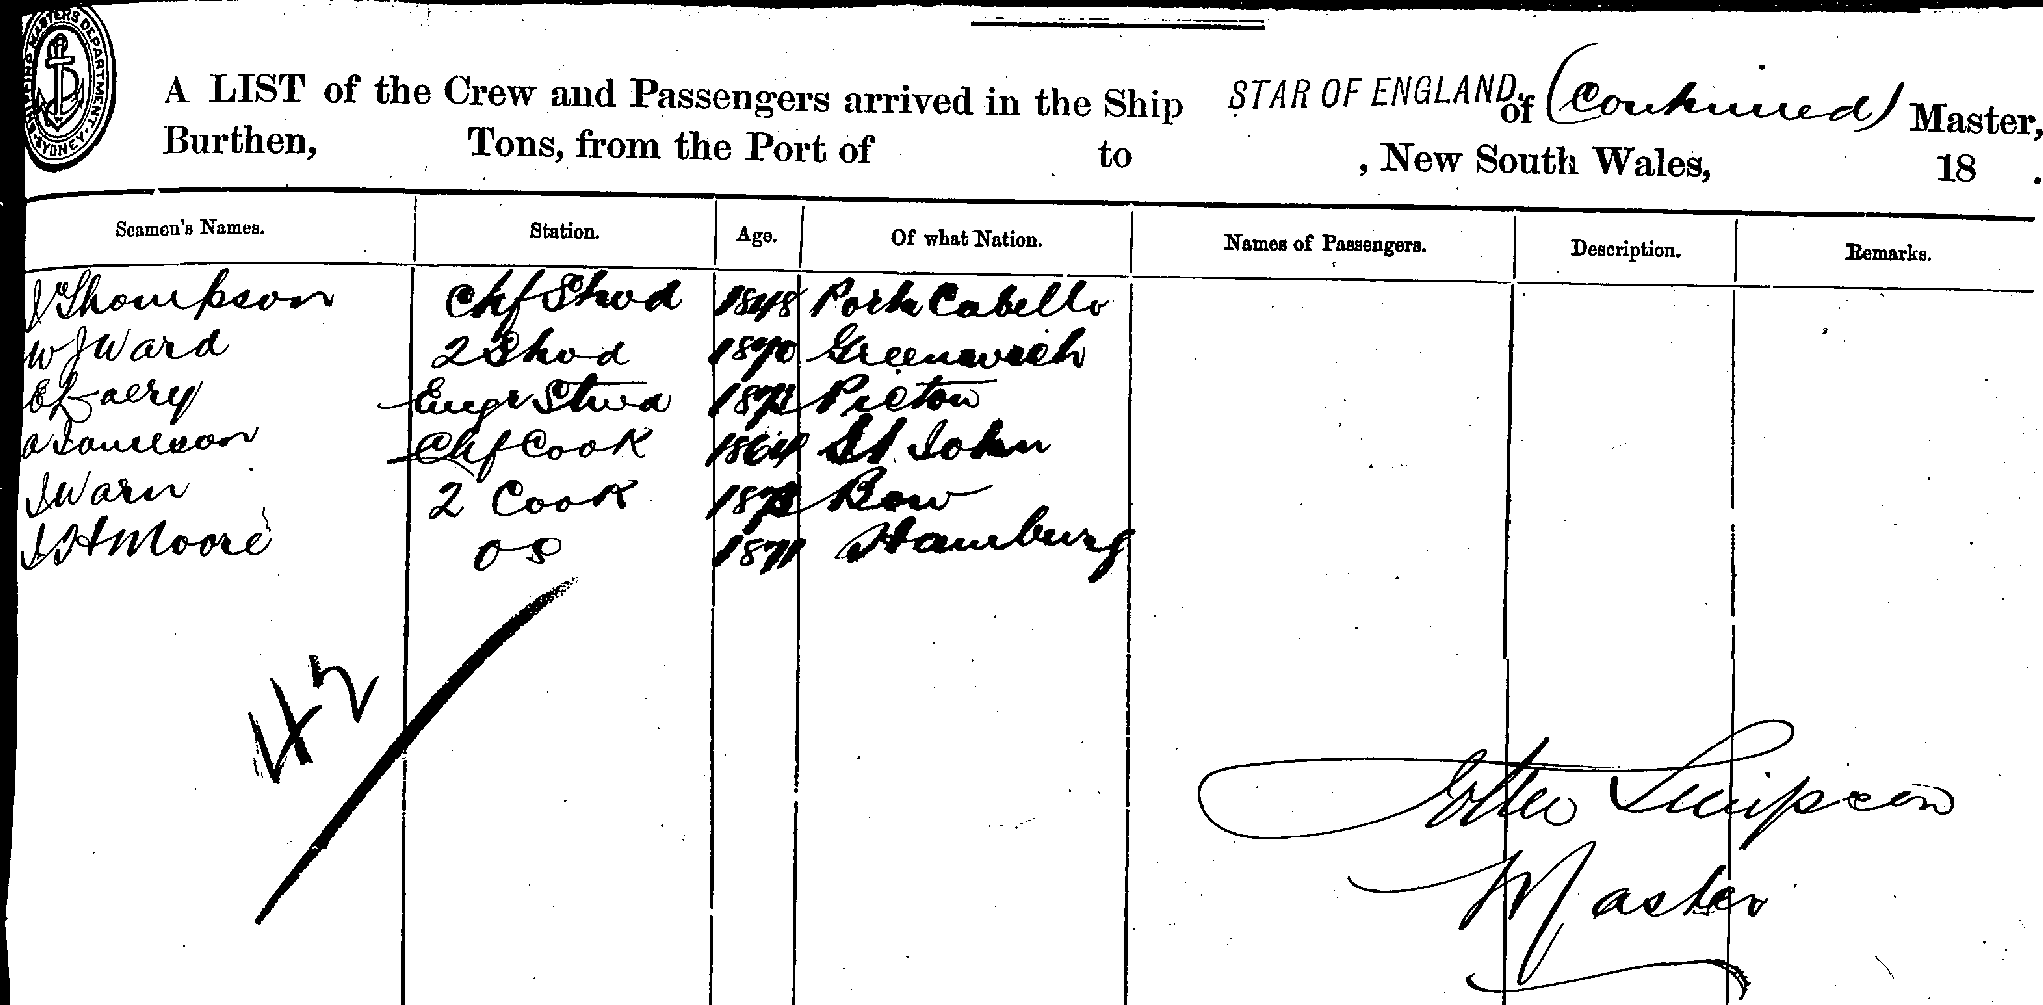 A LIST of the Crew and Passengers arrived in the Ship STAR OF ENGLAND, of (Continued) Master,
Burthen, Tons, from the Port of to , New South Wales, 18 .
Seamen's Names. Station. Age. Of what Nation. Names of Passengers. Description. Remarks.
J Thompson Chf Stwd 1848 Porto Cabello
W J Ward 2 Stwd 1870 Greenwich
Engr Stwd Picton
Chf Cook 1864 St John
J Warn 2 Cook Bow
J H Moore O S 1871 Hamburg
42
Simpson
Master